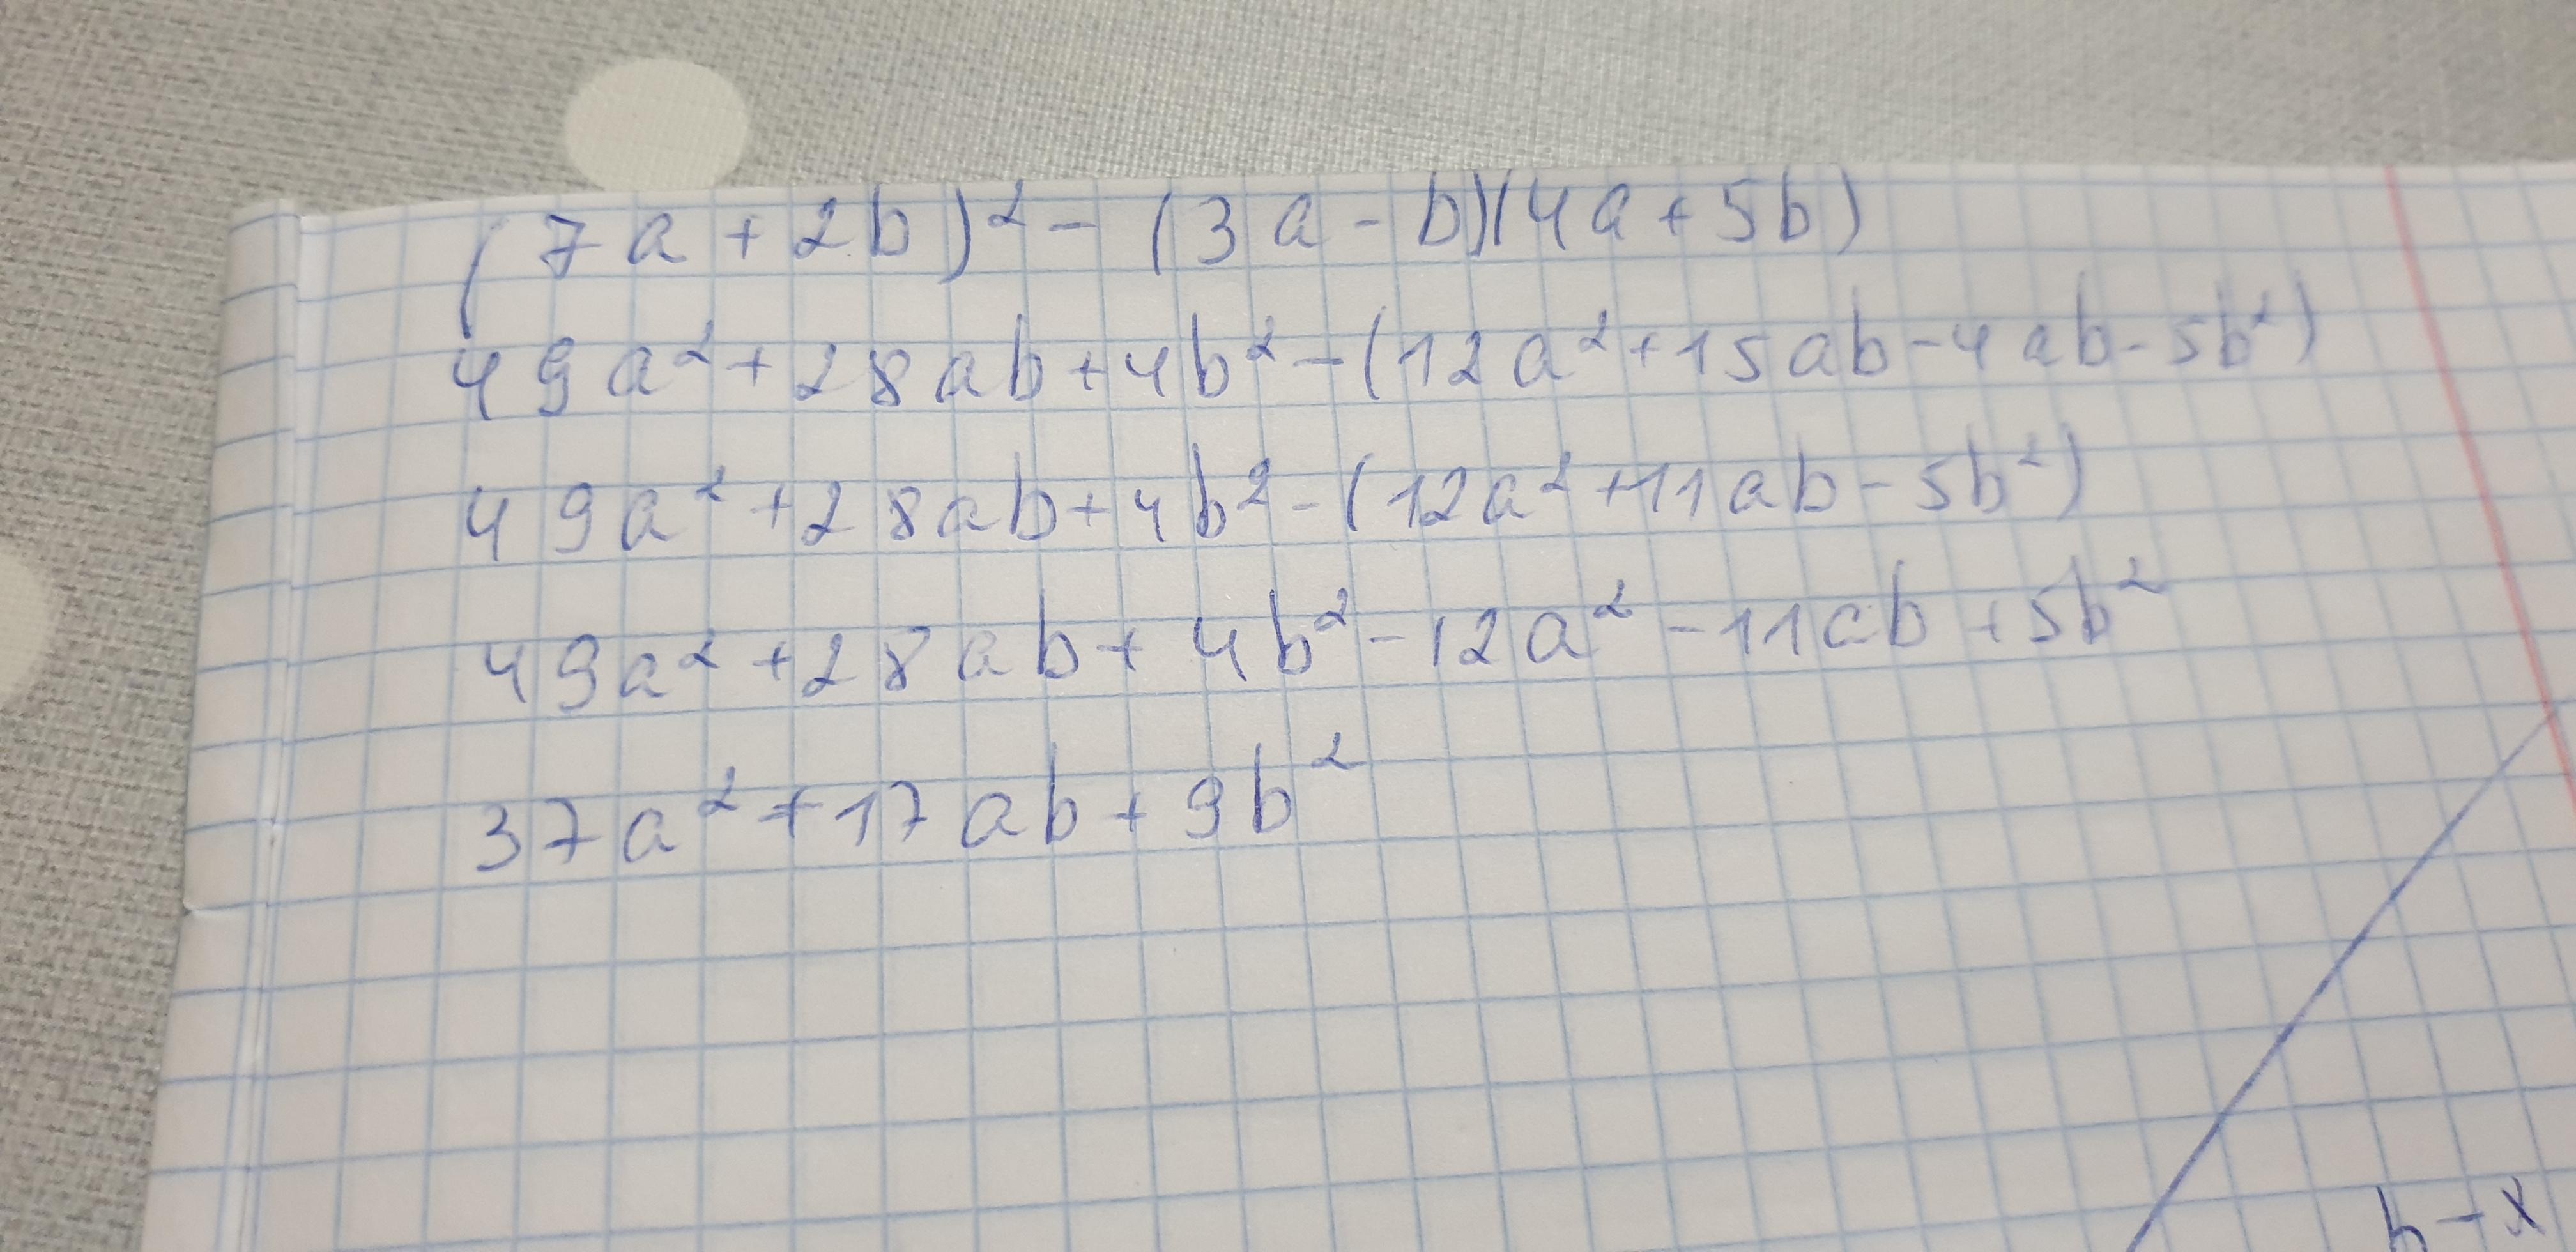 (7a+2b)²-(3a-b)(4a+5b)
49a²+28ab+4b²-(12a²+15ab-4ab-5b²)
49a²+28ab+4b²-(12a²+11ab-5b²)
49a²+28ab+4b²-12a²-11ab+5b²
37a²+17ab+9b²
b-x